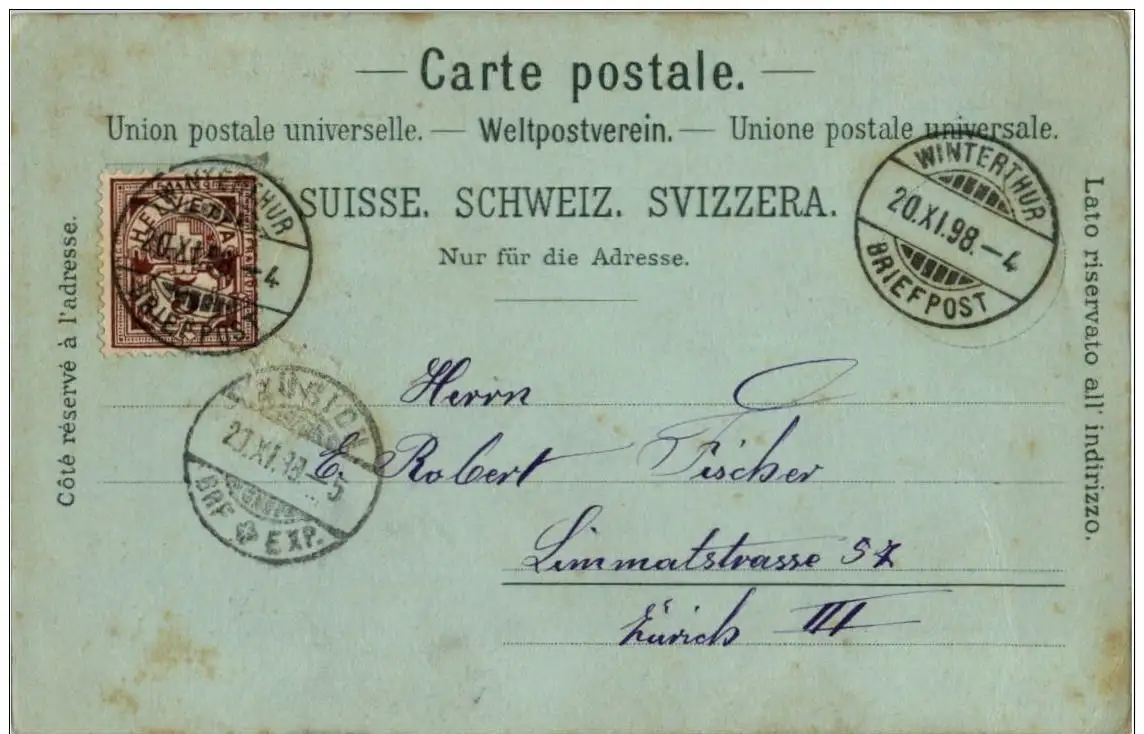 — Carte postale. —
Union postale universelle. — Weltpostverein. — Unione postale universale.
SUISSE. SCHWEIZ. SVIZZERA.
Nur für die Adresse.
Côté réservé à l'adresse.
Lato riservato all' indirizzo.
HELVETIA
WINTERTHUR
20.XI.98.–4
BRIEFPOST
WINTERTHUR
20.XI.98.–4
BRIEFPOST
ZÜRICH
20.XI.98.–5
BRF EXP.
Herrn
E. Robert Fischer
Limmatstrasse 57
Zürich III